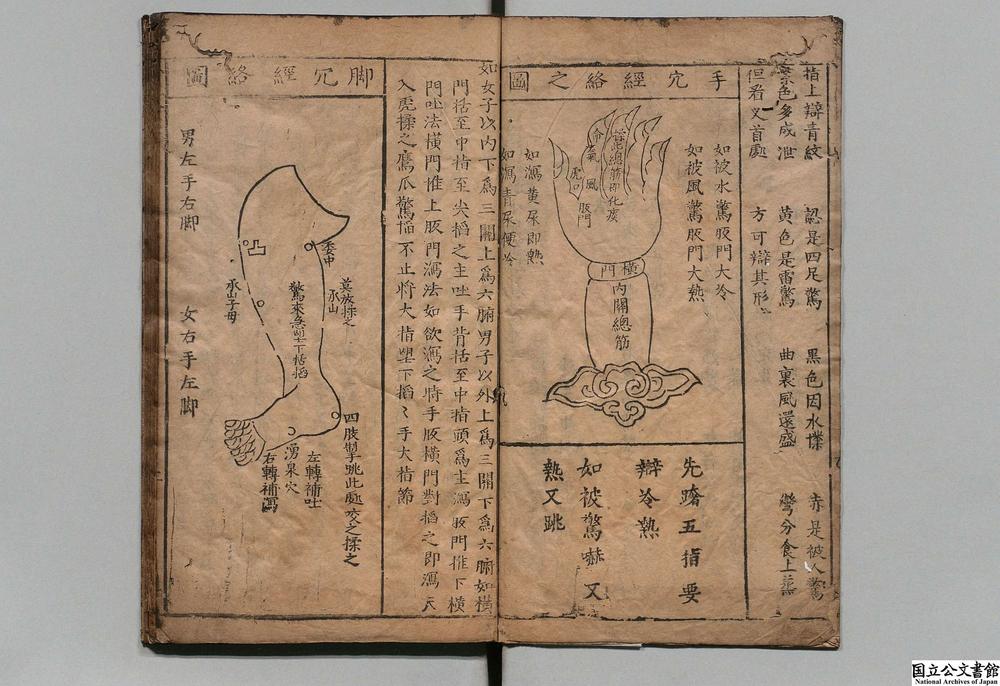 指上辯青紋 認是四足驚 黑色因水撲 赤是被人驚
紫色多成泄 黃色是雷驚 曲裏風還盛 彎分食上蒸
但看叉首處 方可辯其形
手宂經絡之圖
如被水驚版門大冷
如被風驚版門大熱
橫門
內關總筋
虎口
風
版門
氣
命
如瀉黃屎即熱
如瀉青屎便冷
先蹻五指要
辯冷熱
如被驚嚇又
熱又跳
如女子以內下為三關上為六腑男子以外上為三關下為六腑如橫
門括至中指至尖掐之主吐手背括至中指頭為主瀉版門推下橫
門吐法橫門推上版門瀉法如欲瀉之時手版橫門對掐之即瀉天
入虎揉之鷹爪驚掐不止將大指望下掐〻手大指節
脚宂經絡圖
委中
莫放揉之
承山
驚來急
下括掐
凸
承山子母
四肢掣手跳此處交之揉之
左轉補吐
湧泉穴
右轉補瀉
男左手右脚
女右手左脚
国立公文書館
National Archives of Japan